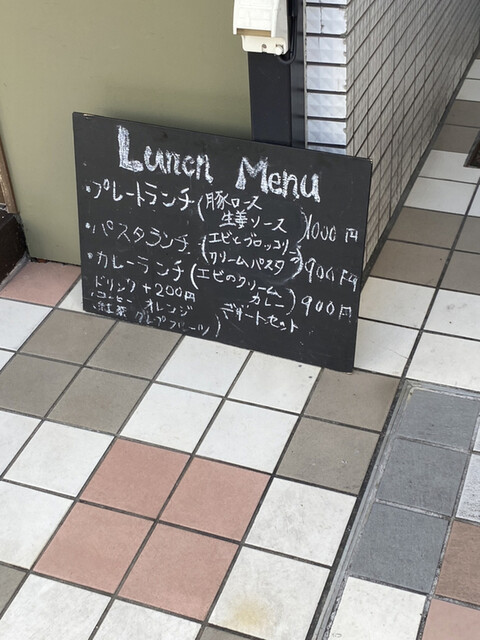 Lunch Menu
・プレートランチ(豚ロース
生姜ソース)1000円
・パスタランチ(エビとブロッコリー
クリームパスタ)900円
・カレーランチ(エビのクリーム
カレー)900円
ドリンク+200円
コーヒー オレンジ デザートセット
紅茶 グレープフルーツ)